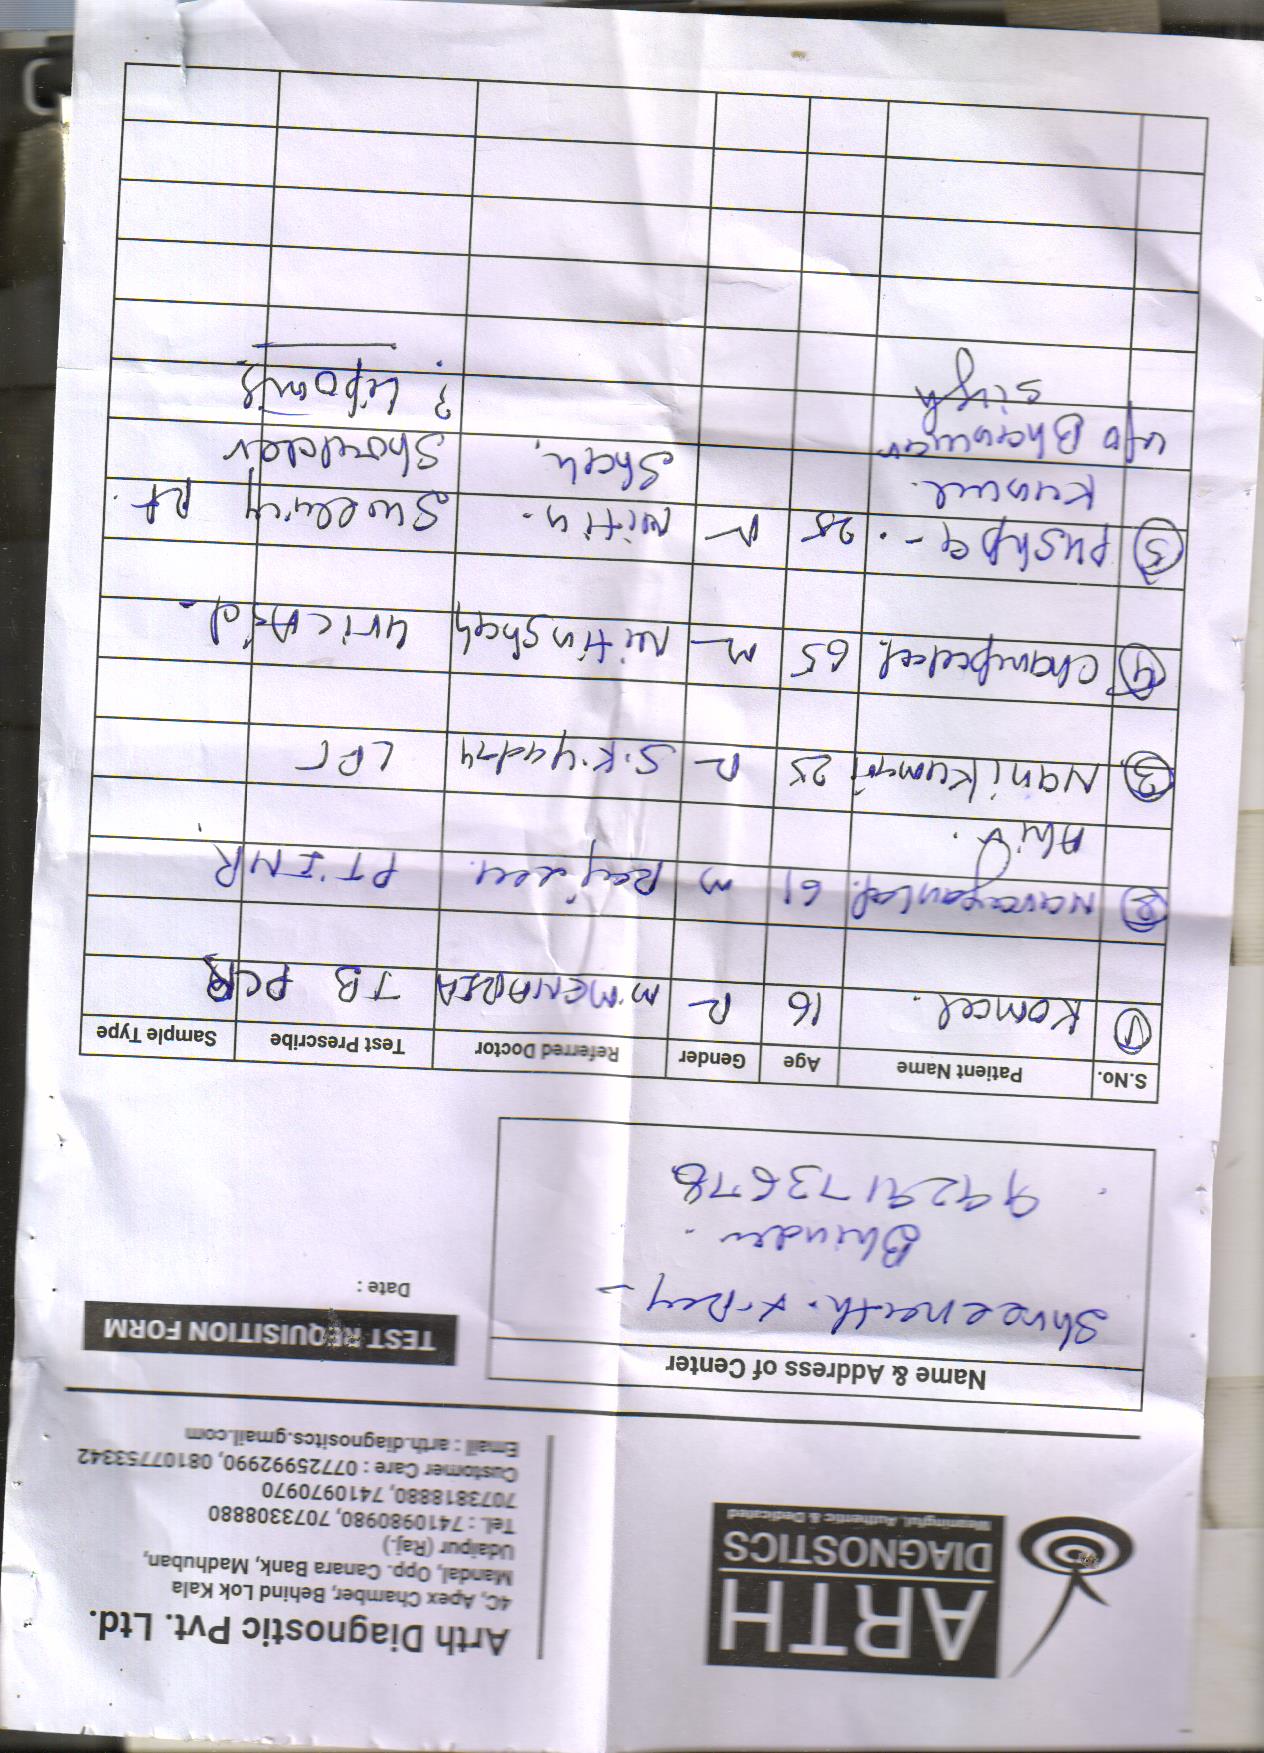 ARTH
DIAGNOSTICS
Meaningful, Authentic & Dedicated
Arth Diagnostic Pvt. Ltd.
4C, Apex Chamber, Behind Lok Kala
Mandal, Opp. Canara Bank, Madhuban,
Udaipur (Raj.)
Tel. : 7410980980, 7073308880
7073818880, 7410970970
Customer Care : 07725992990, 08107753342
Email : arth.diagnositcs.gmail.com
Name & Address of Center
Shreenath. X-Ray
Bhinder.
9929173678
TEST REQUISITION FORM
Date :
S.No. Patient Name Age Gender Referred Doctor Test Prescribe Sample Type
1 Komal. 16 M.MENARIA TB PCR
2 Narayanlal. 61 m PT INR
3 Nani kumari 25 S.K. Yadav LFT
4 Champalal. 65 m Nitin Shah Uric Acid.
5 Pushpa 25 Nitin. Swelling Rt.
Shah. Shoulder
w/o
Singh ? Lipoma